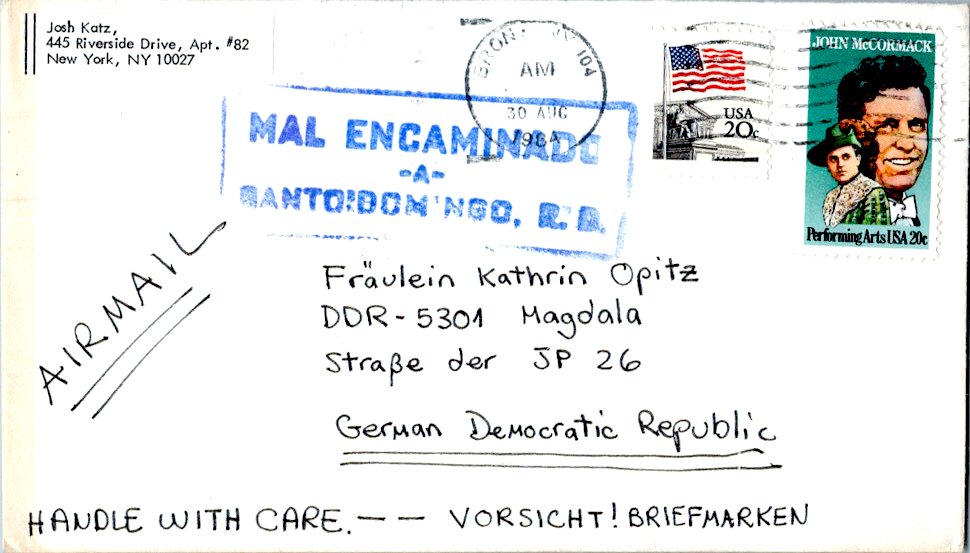 Josh Katz,
445 Riverside Drive, Apt. #82
New York, NY 10027
BRONX NY 104
AM
30 AUG
1984
USA
20c
JOHN McCORMACK
Performing Arts USA 20c
MAL ENCAMINADO
-A-
SANTO DOMINGO, R. D.
AIRMAIL
Fräulein Kathrin Opitz
DDR-5301 Magdala
Straße der JP 26
German Democratic Republic
HANDLE WITH CARE. - - VORSICHT! BRIEFMARKEN